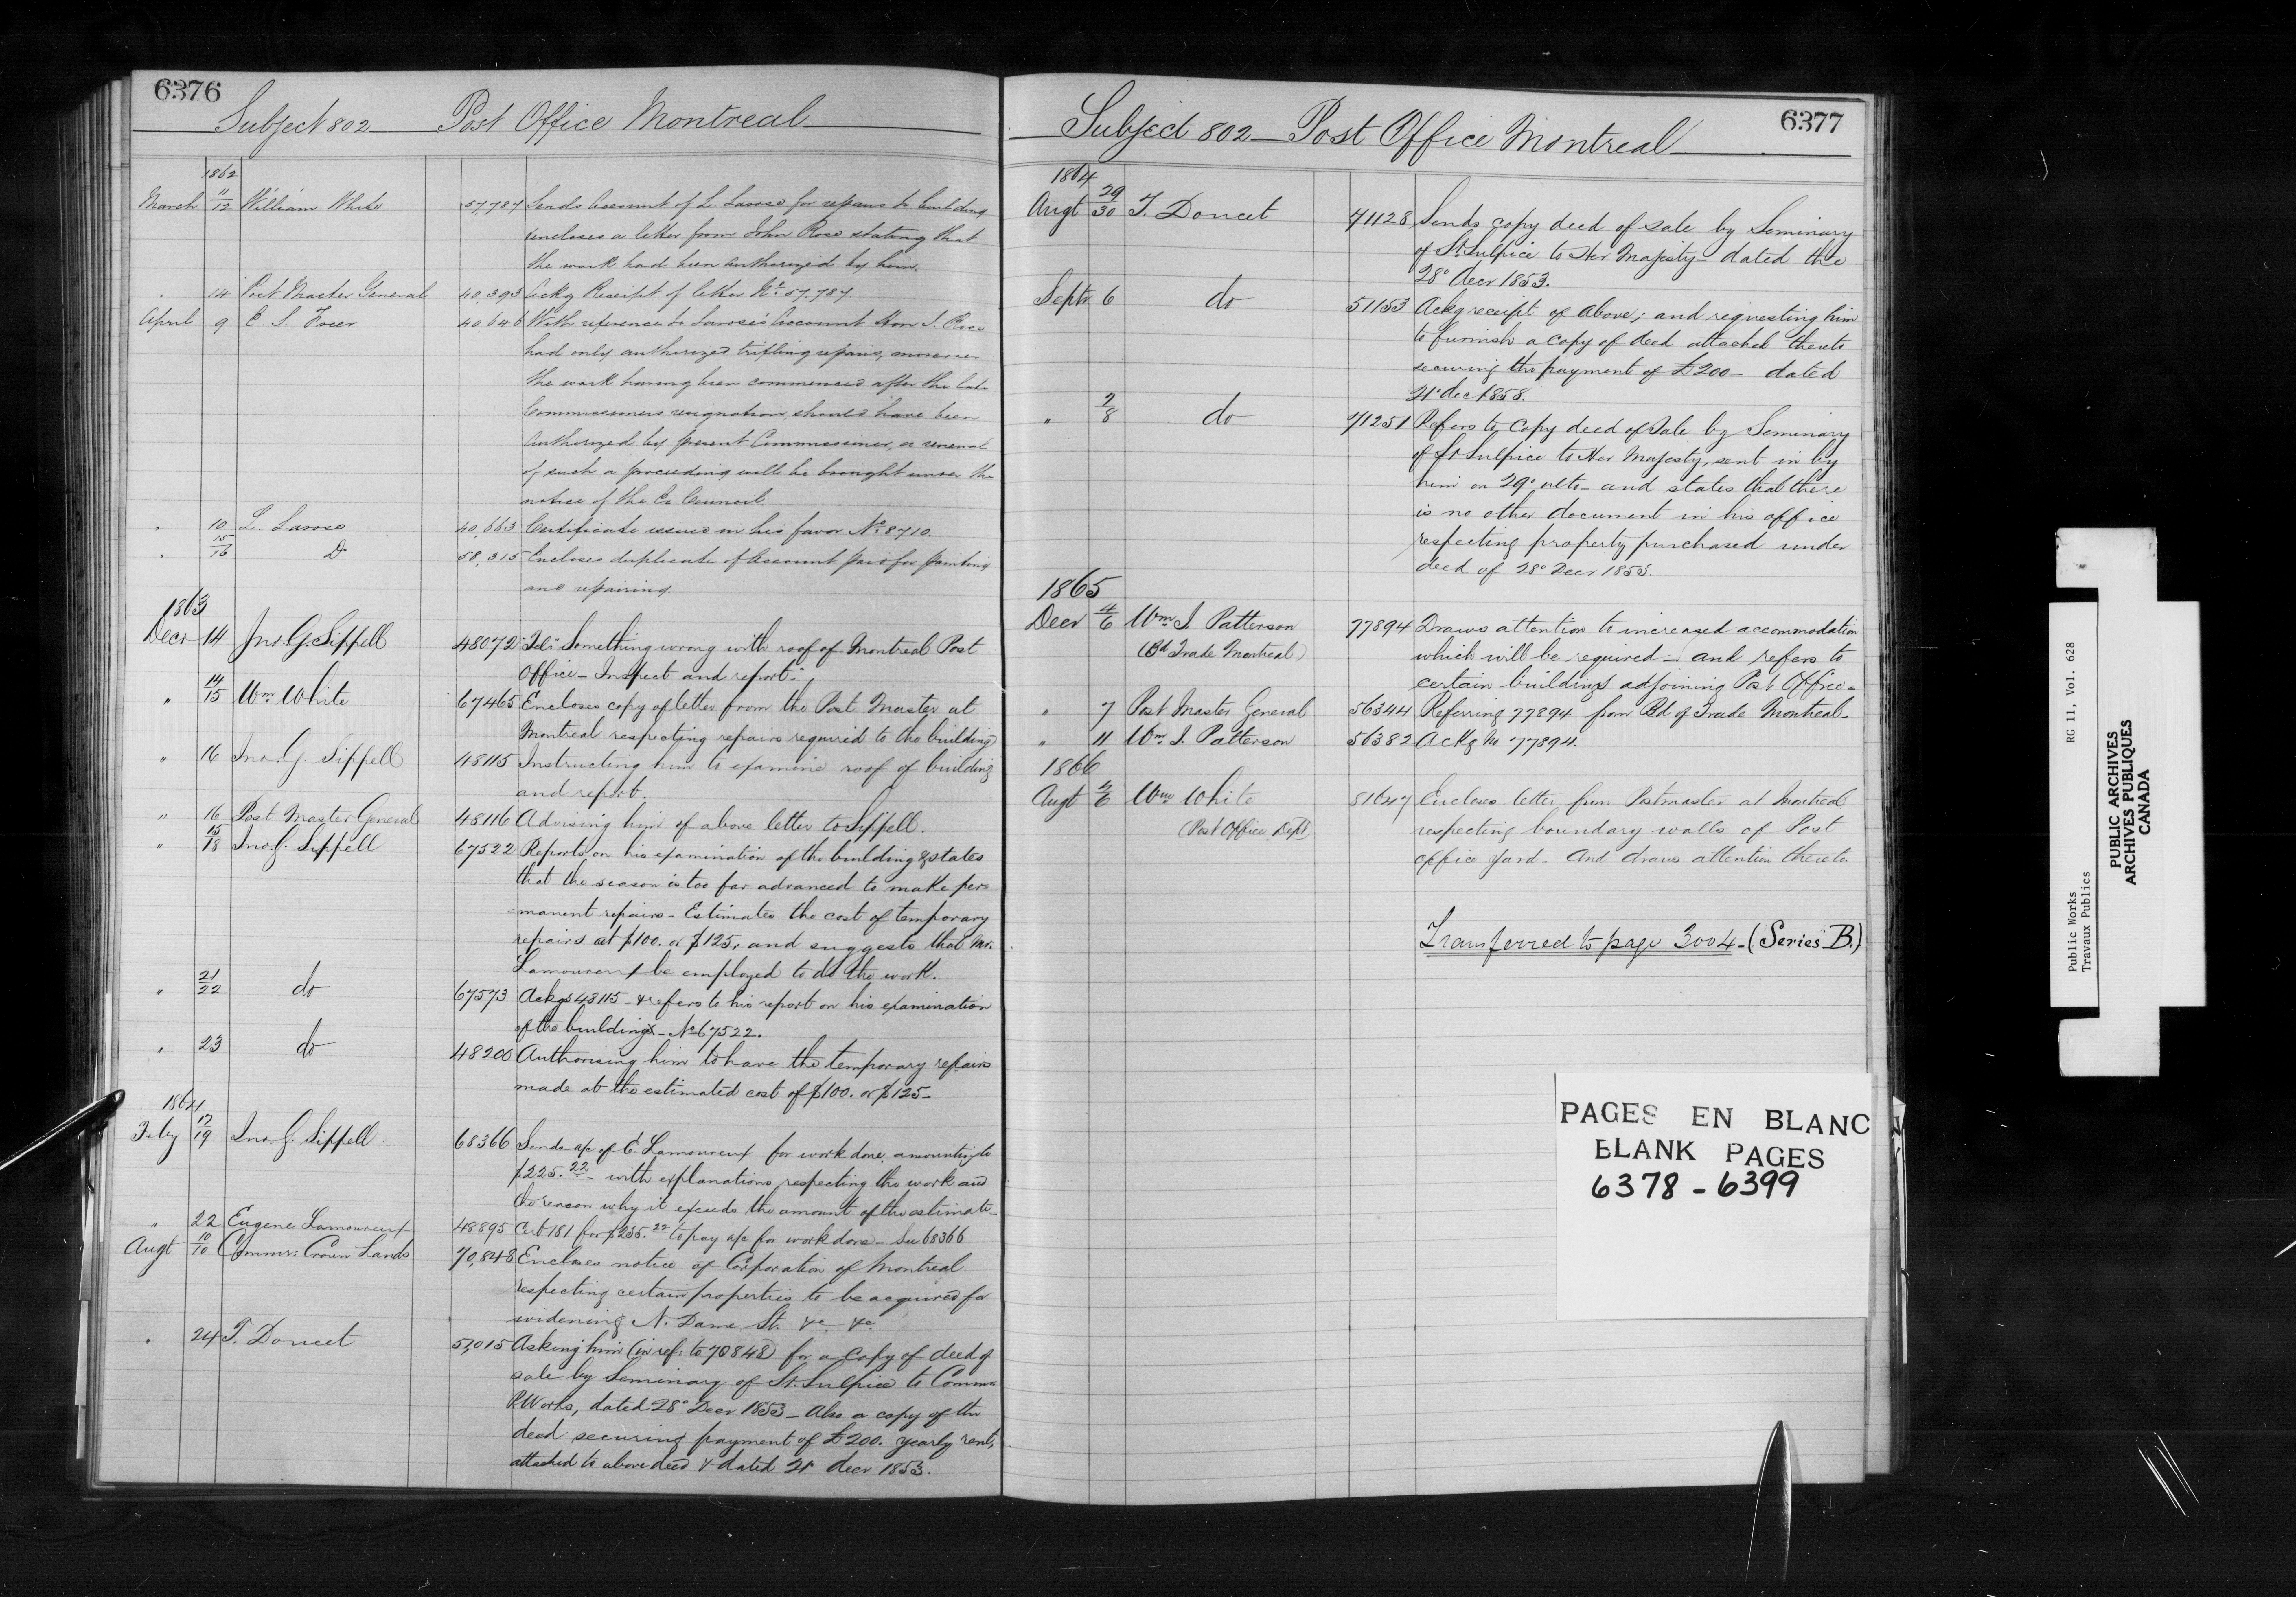 6376
Subject 802 Post Office Montreal
1862
March 11/12 William White 57,787 Sends Account of L. Larose for repairs to building
encloses a letter from John Rose stating that
the work had been authorized by him.
" 14 Post Master General 40,393 Ackg Receipt of letter No. 57,787.
April 9 E. S. 40,646 With reference to Larose's Account Hon J. Rose
had only authorized trifling repairs, moreover
the work having been commenced after the late
Commissioners resignation, should have been
authorized by present Commissioner, a renewal
of such a proceeding will be brought under the
notice of the Ex Council
" 10 L. Larose 40,663 Certificate issued in his favor No. 8710.
" 15/16 Do 58,315 Encloses duplicate of Account paid for painting
and repairing.
1863
Decr 14 Jno. G. Sippell 48072 Tel: Something wrong with roof of Montreal Post
Office - Inspect and report.
" 14/15 Wm White 67465 Encloses copy of letter from the Post Master at
Montreal respecting repairs required to the building
" 16 Jno. G. Sippell 48115 Instructing him to examine roof of building
and report.
" 16 Post Master General 48116 Advising him of above letter to Sippell.
" 15/18 Jno. G. Sippell 67522 Reports on his examination of the building & states
that the season is too far advanced to make per=
=manent repairs - Estimates the cost of temporary
repairs at $100. or $125, and suggests that Mr.
Lamoureux be employed to do the work.
" 21/22 do 67573 Ackgs 48115 - & refers to his report on his examination
of the building - No 67522.
" 23 do 48200 Authorising him to have the temporary repairs
made at the estimated cost of $100. or $125 -
1864
Feby 17/19 Jno. G. Sippell 68366 Sends a/c of E. Lamoureux for work done amounting to
$225.22 - with explanations respecting the work and
the reason why it exceeds the amount of the estimate -
" 22 Eugene Lamoureux 48895 Cert 181 for $225.22 to pay a/c for work done - See 68366
Augt 10/10 Commr: Crown Lands 70,848 Encloses notice of Corporation of Montreal
respecting certain properties to be acquired for
widening N. Dame St. &c &c
" 24 T. Doucet 51,015 Asking him (in ref: to 70848) for a copy of deed of
sale by Seminary of St. Sulpice to Commr
P. Works, dated 28° Decr 1853 - Also a copy of the
deed securing payment of £200. yearly rent,
attached to above deed & dated 21 decr 1853.
6377
Subject 802 - Post Office Montreal
1864
Augt 29/30 T. Doucet 71128 Sends copy deed of sale by Seminary
of St. Sulpice to Her Majesty - dated the
28° Decr 1853.
Septr 6 do 51153 Ackg receipt of above; and requesting him
to furnish a copy of deed attached thereto
securing the payment of £200 - dated
21° dec 1858.
" 2/8 do 71251 Refers to copy deed of Sale by Seminary
of St Sulpice to Her Majesty, sent in by
him on 29° ulto - and states that there
is no other document in his office
respecting property purchased under
deed of 28° Decr 1853.
1865
Decr 4/6 Wm J Patterson 77894 Draws attention to increased accommodation
(Bd Trade Montreal) which will be required - and refers to
certain buildings adjoining Post Office -
" 7 Post Master General 56344 Referring 77894 from Bd of Trade Montreal -
" 11 Wm J. Patterson 56382 Ackg 77894.
1866
Augt /6 Wm White 81647 Encloses letter from Postmaster at Montreal
(Post Office Dept) respecting boundary walls of Post
office yard - And draws attention thereto
Transferred to page 3004 - (Series B.)
PAGES EN BLANC
BLANK PAGES
6378 - 6399
Public Works RG 11, Vol. 628
Travaux Publics
PUBLIC ARCHIVES
ARCHIVES PUBLIQUES
CANADA